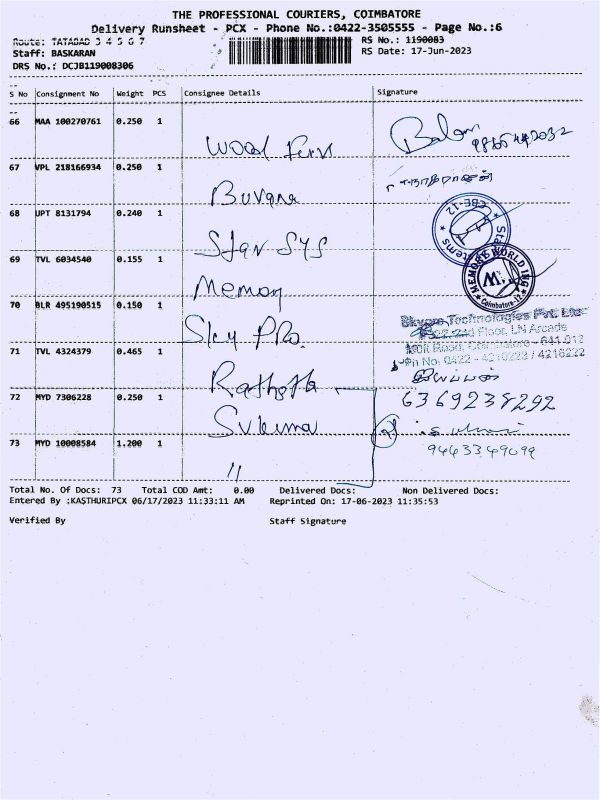 THE PROFESSIONAL COURIERS, COIMBATORE
Delivery Runsheet - PCX - Phone No.:0422-3505555 - Page No.:6
Route: TATABAD 3 4 5 6 7 RS No.: 1190083
Staff: BASKARAN RS Date: 17-Jun-2023
DRS No.: DCJB119008306
S No Consignment No Weight PCS Consignee Details Signature
66 MAA 100270761 0.250 1
67 VPL 218166934 0.250 1
Buvana
68 UPT 8131794 0.240 1
Star Sys
CBE-12
69 TVL 6034540 0.155 1
Memory
MEMORY WORLD ING
Coimbatore-12
70 BLR 495190515 0.150 1
Sky Pro.
Technologies Pvt. Ltd
2nd Floor, LN Arcade
Road, Coimbatore - 641 012
Ph No: 0422 - 4216223 / 4216222
71 TVL 4324379 0.465 1
72 MYD 7306228 0.250 1
6369238292
73 MYD 10008584 1.200 1
9443349099
"
Total No. Of Docs: 73 Total COD Amt: 0.00 Delivered Docs: Non Delivered Docs:
Entered By :KASTHURIPCX 06/17/2023 11:33:11 AM Reprinted On: 17-06-2023 11:35:53
Verified By Staff Signature